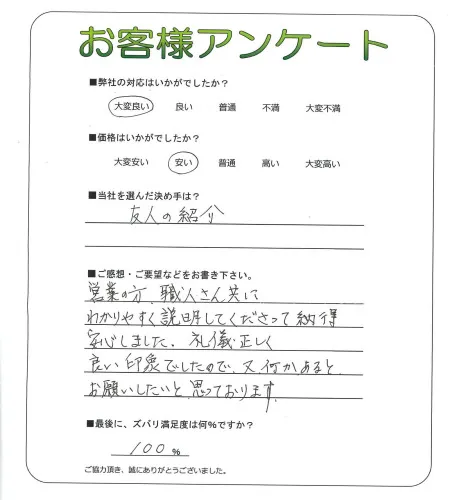 お客様アンケート
■弊社の対応はいかがでしたか？
大変良い 良い 普通 不満 大変不満
■価格はいかがでしたか？
大変安い 安い 普通 高い 大変高い
■当社を選んだ決め手は？
友人の紹介
■ご感想・ご要望などをお書き下さい。
営業の方、職人さん共に
わかりやすく説明してくださって納得
安心しました。礼儀正しく
良い印象でしたので、又何かあると、
お願いしたいと思っております。
■最後に、ズバリ満足度は何%ですか？
100 %
ご協力頂き、誠にありがとうございました。